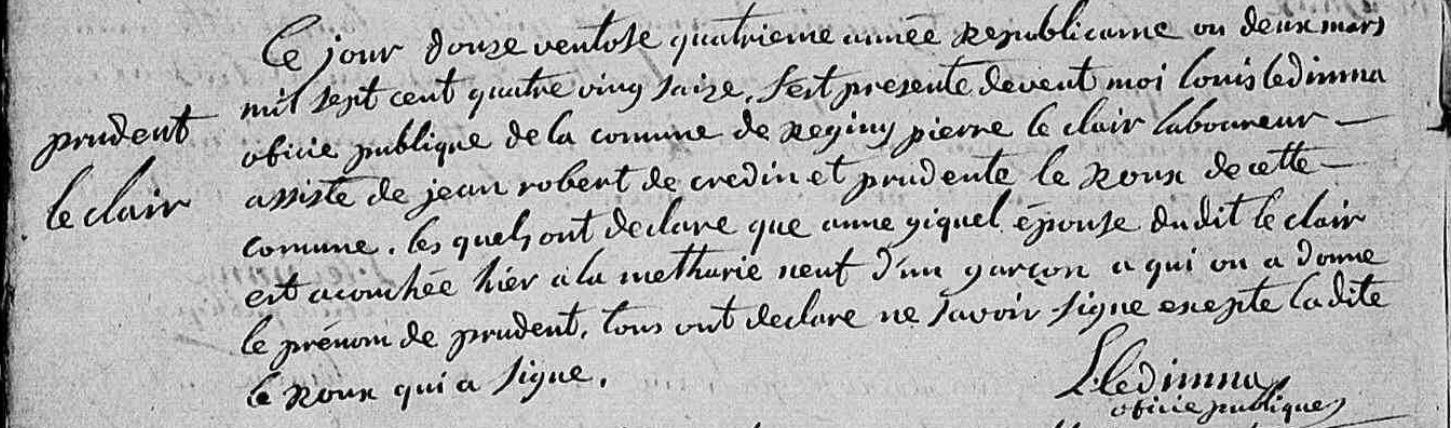 Ce jour douze ventose quatrieme année republicaine ou deux mars
mil sept cent quatre ving saize, s'est presente devent moi louis ledimna
prudent
oficie publique de la comune de reginy pierre le clair laboureur
le clair
assiste de jean robert de credin et prudente le roux de cette
comune. les quels ont declare que anne giquel épouse dudit le clair
est acouchée hier a la metharie neuf d'un garçon a qui on a donne
le prénom de prudent, tous ont declare ne savoir signe exepte ladite
le roux qui a signe.
L ledimna
oficie publique